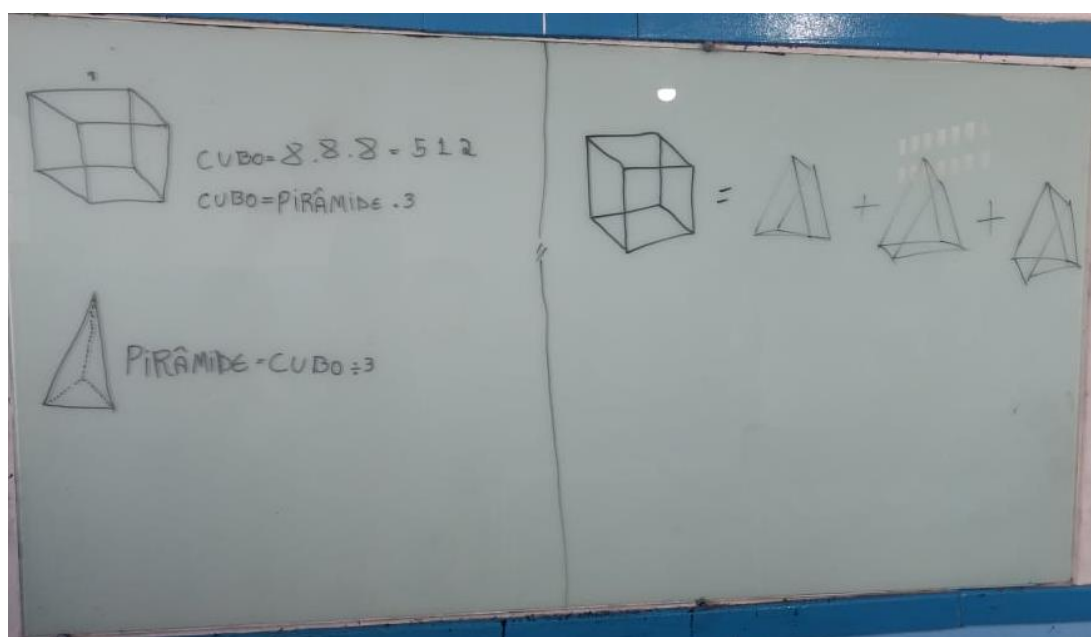 CUBO=8.8.8=512
CUBO=PIRÂMIDE.3
PIRÂMIDE=CUBO÷3
=
+
+